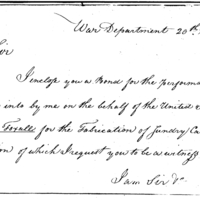 War Department 20th
Sir
I enclose you a Bond for the performa
into by me on the behalf of the United
Foxall for the Fabrication of Sundry Ca
on of which I request you to be a witness
I am Sir &c.